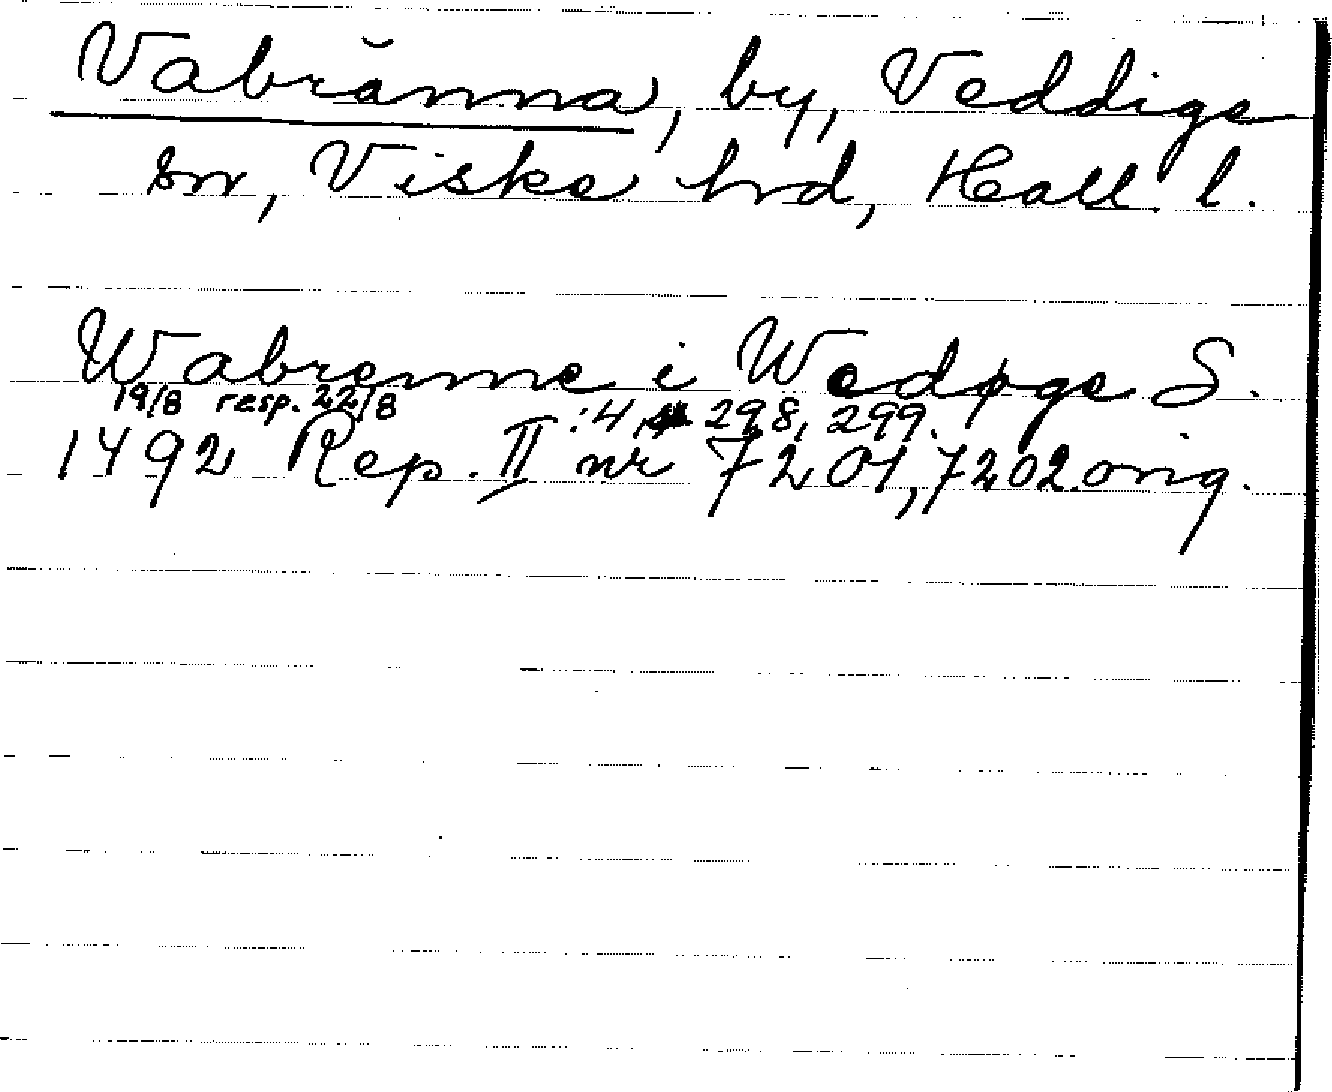 Vabränna, by, Veddige
sn, Viske hrd, Hall. l.
Wabrenne i Wedøge S.
19/8 resp. 22/8 :4, 298, 299.
1492 Rep. II nr 7201, 7202 orig.